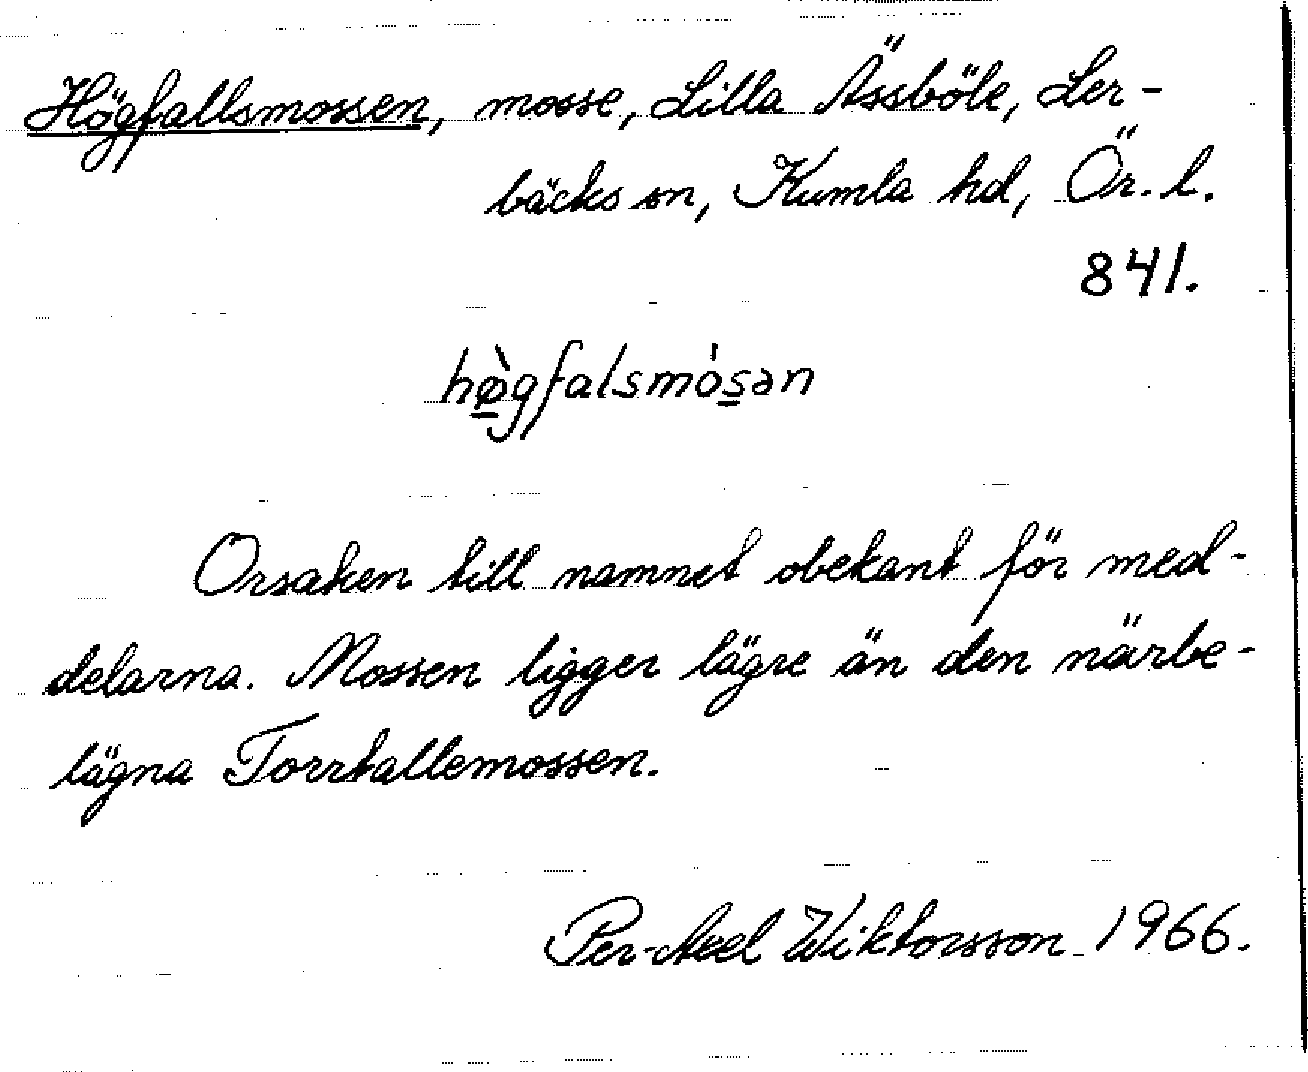 Högfallsmossen, mosse, Lilla Ässböle, Ler-
bäcks sn, Kumla hd, Ör. l.
841.
hø̀gfalsmósən
Orsaken till namnet obekant för med-
delarna. Mossen ligger lägre än den närbe-
lägna Torrtallemossen.
Per-Axel Wiktorsson 1966.